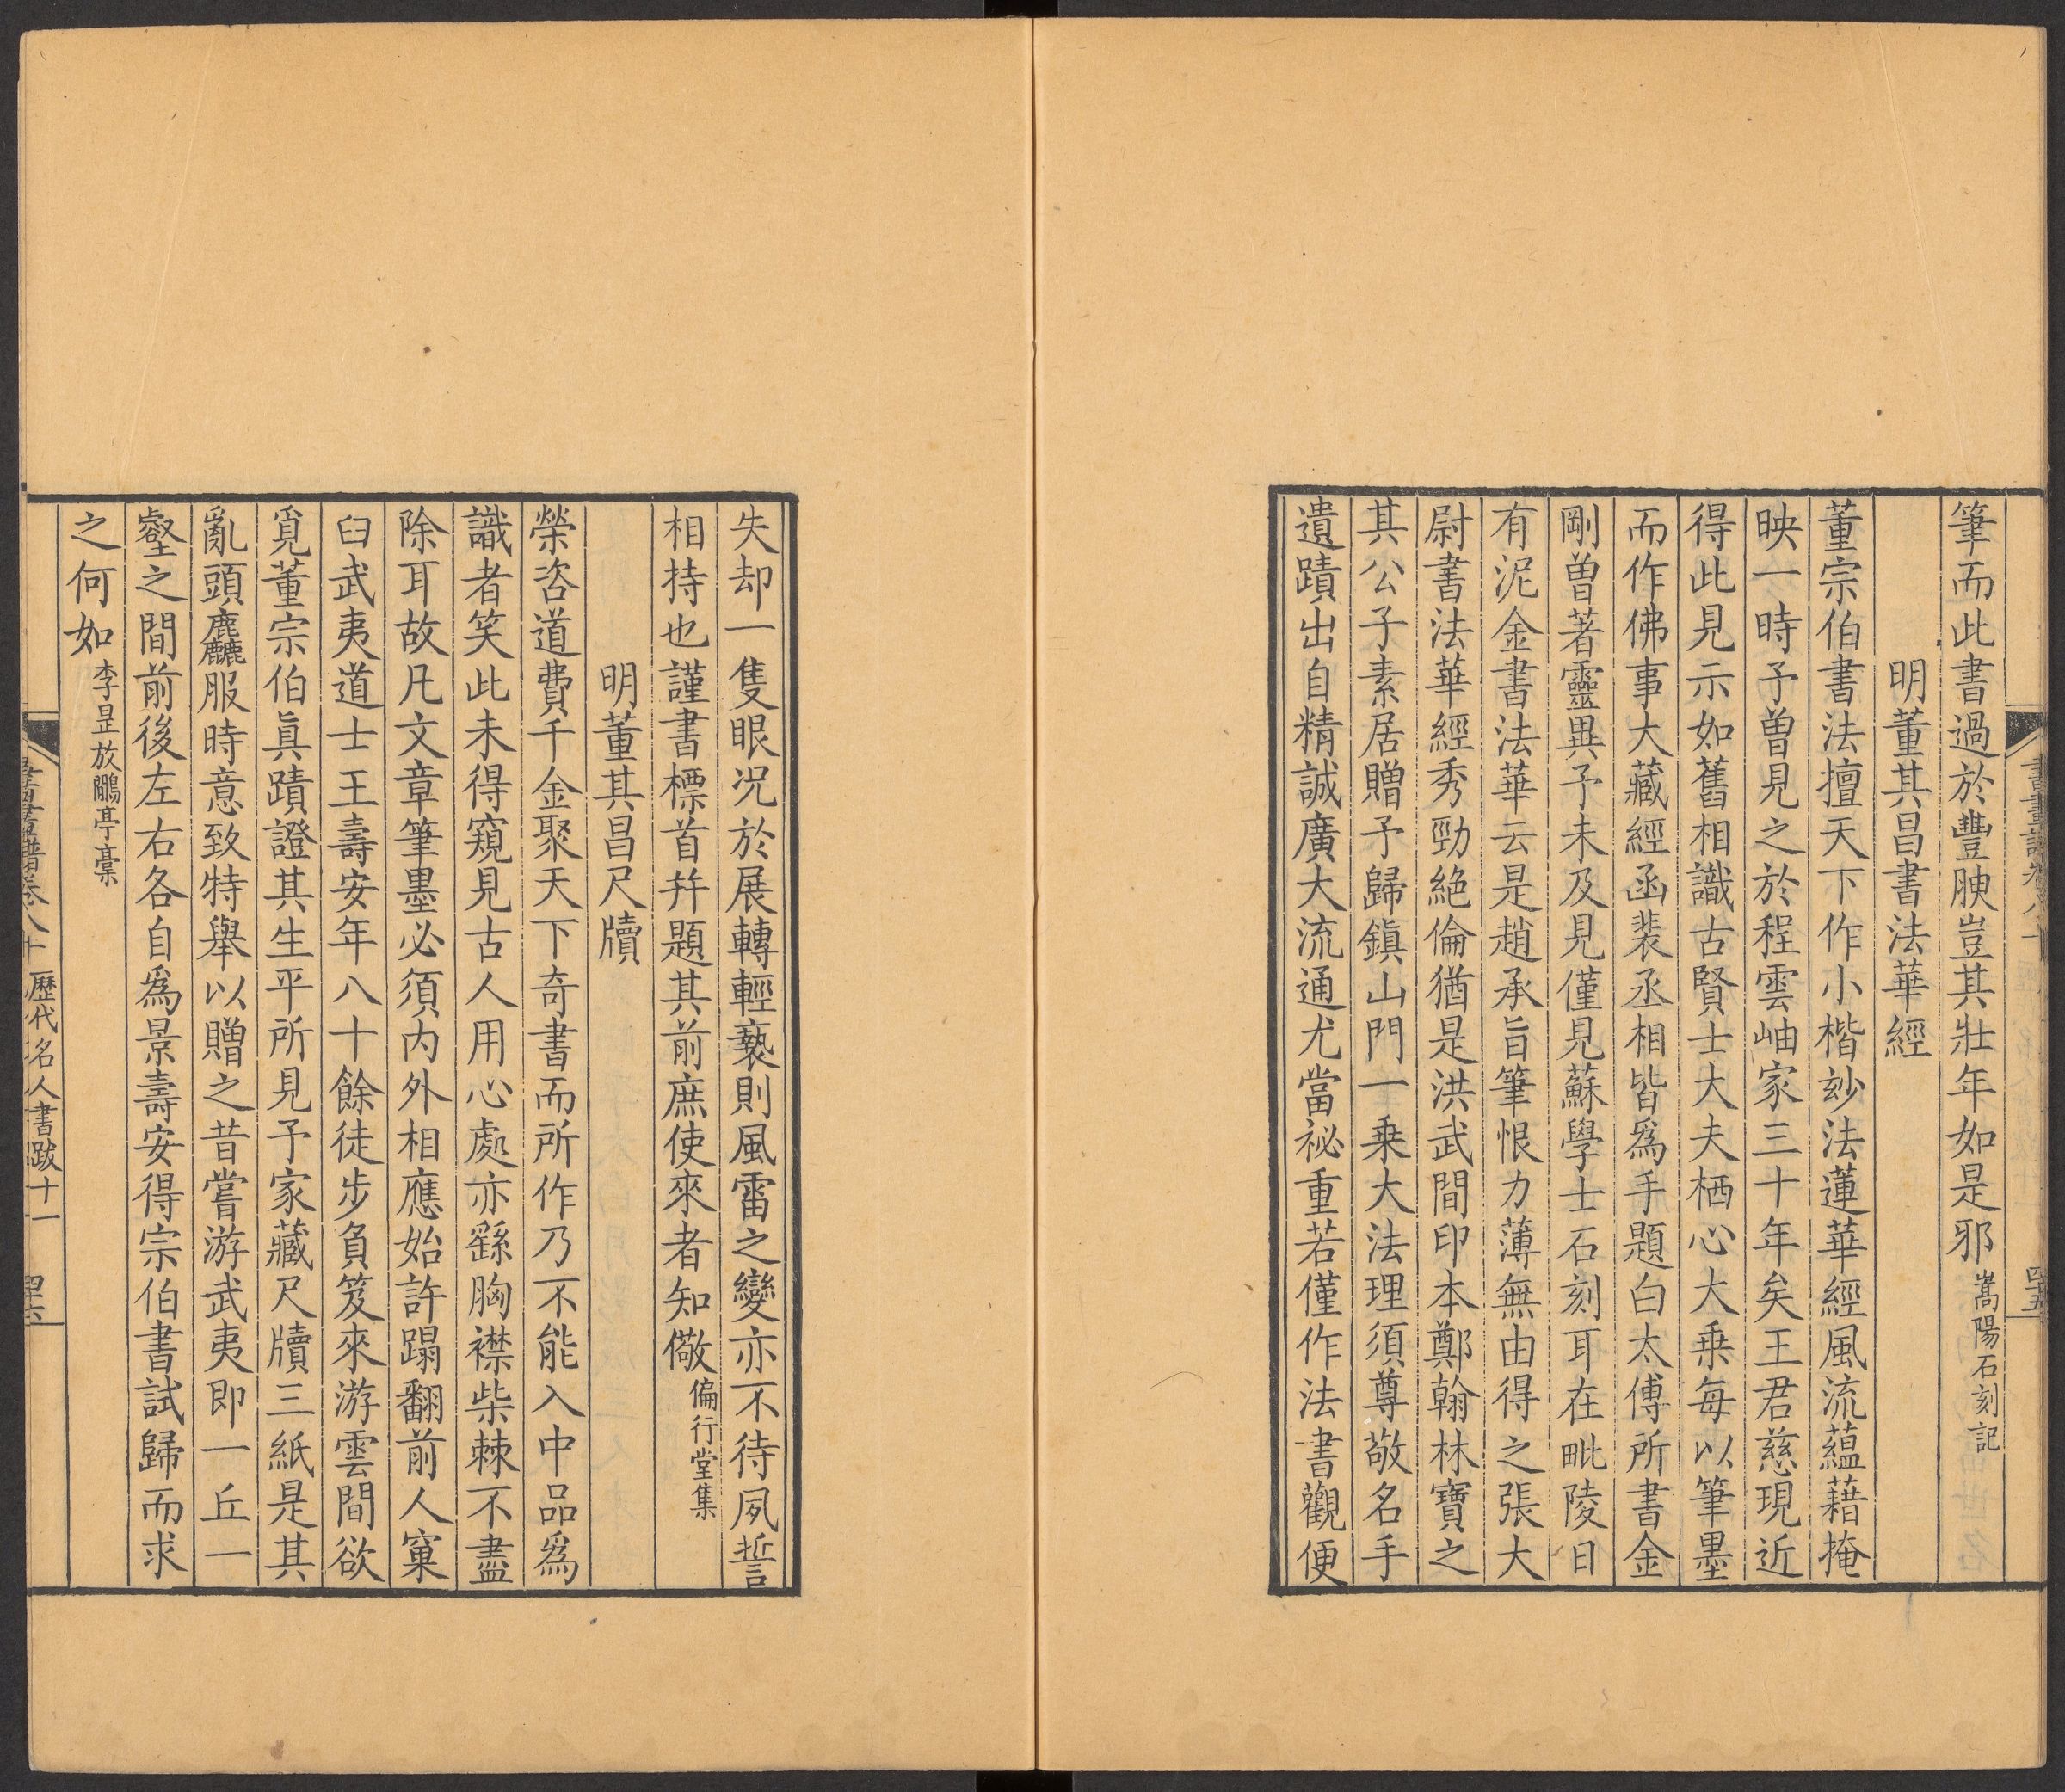 筆而此書過於豐腴豈其壯年如是邪嵩陽石刻記
明董其昌書法華經
董宗伯書法擅天下作小楷玅法蓮華經風流蘊藉掩
映一時予曾見之於程雲岫家三十年矣王君慈現近
得此見示如舊相識古賢士大夫栖心大乗每以筆墨
而作佛事大藏經函裴丞相皆爲手題白太傅所書金
剛曾著靈異予未及見僅見蘇學士石刻耳在毗陵日
有泥金書法華云是趙承旨筆恨力薄無由得之張大
尉書法華經秀勁絶倫猶是洪武間印本鄭翰林寶之
其公子素居贈予歸鎭山門一乗大法理須尊敬名手
遺蹟出自精誠廣大流通尤當祕重若僅作法書觀便
失却一隻眼况於展轉輕褻則風雷之變亦不待夙誓
相持也謹書標首幷題其前庶使來者知儆偏行堂集
明董其昌尺牘
榮咨道費千金聚天下奇書而所作乃不能入中品爲
識者笑此未得窺見古人用心處亦繇胸襟柴棘不盡
除耳故凡文章筆墨必須内外相應始許蹋翻前人窠
臼武夷道士王壽安年八十餘徒步負笈來游雲間欲
覓董宗伯眞蹟證其生平所見予家藏尺牘三紙是其
亂頭麤服時意致特舉以贈之昔嘗游武夷即一丘一
壑之間前後左右各自爲景壽安得宗伯書試歸而求
之何如李昰放鷴亭稾
書畫譜卷八十 歷代名人書跋十一